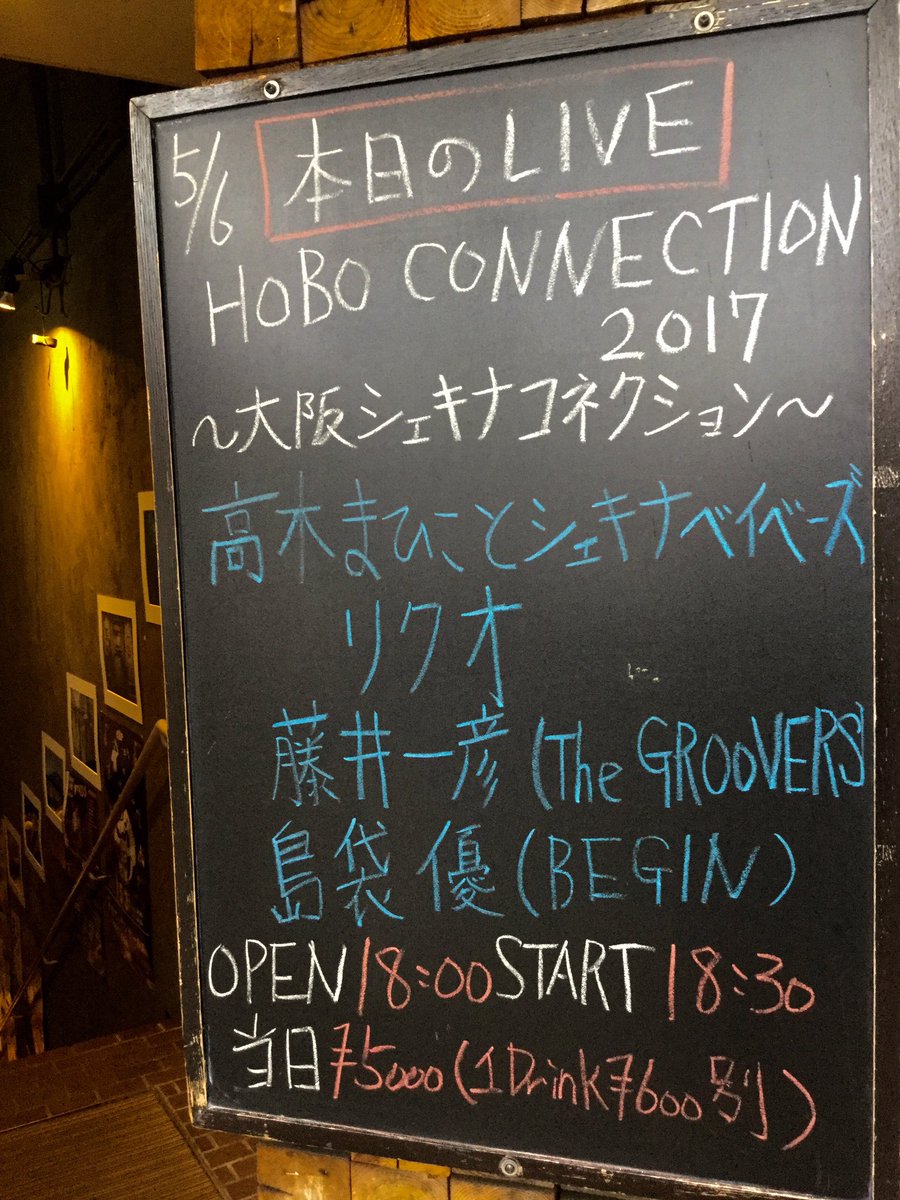 5/6 本日のLIVE
HOBO CONNECTION
2017
〜大阪シェキナコネクション〜
高木まひことシェキナベイベーズ
リクオ
藤井一彦(The GROOVERS
島袋優(BEGIN)
OPEN18:00START18:30
当日¥5000(1Drink¥600別)